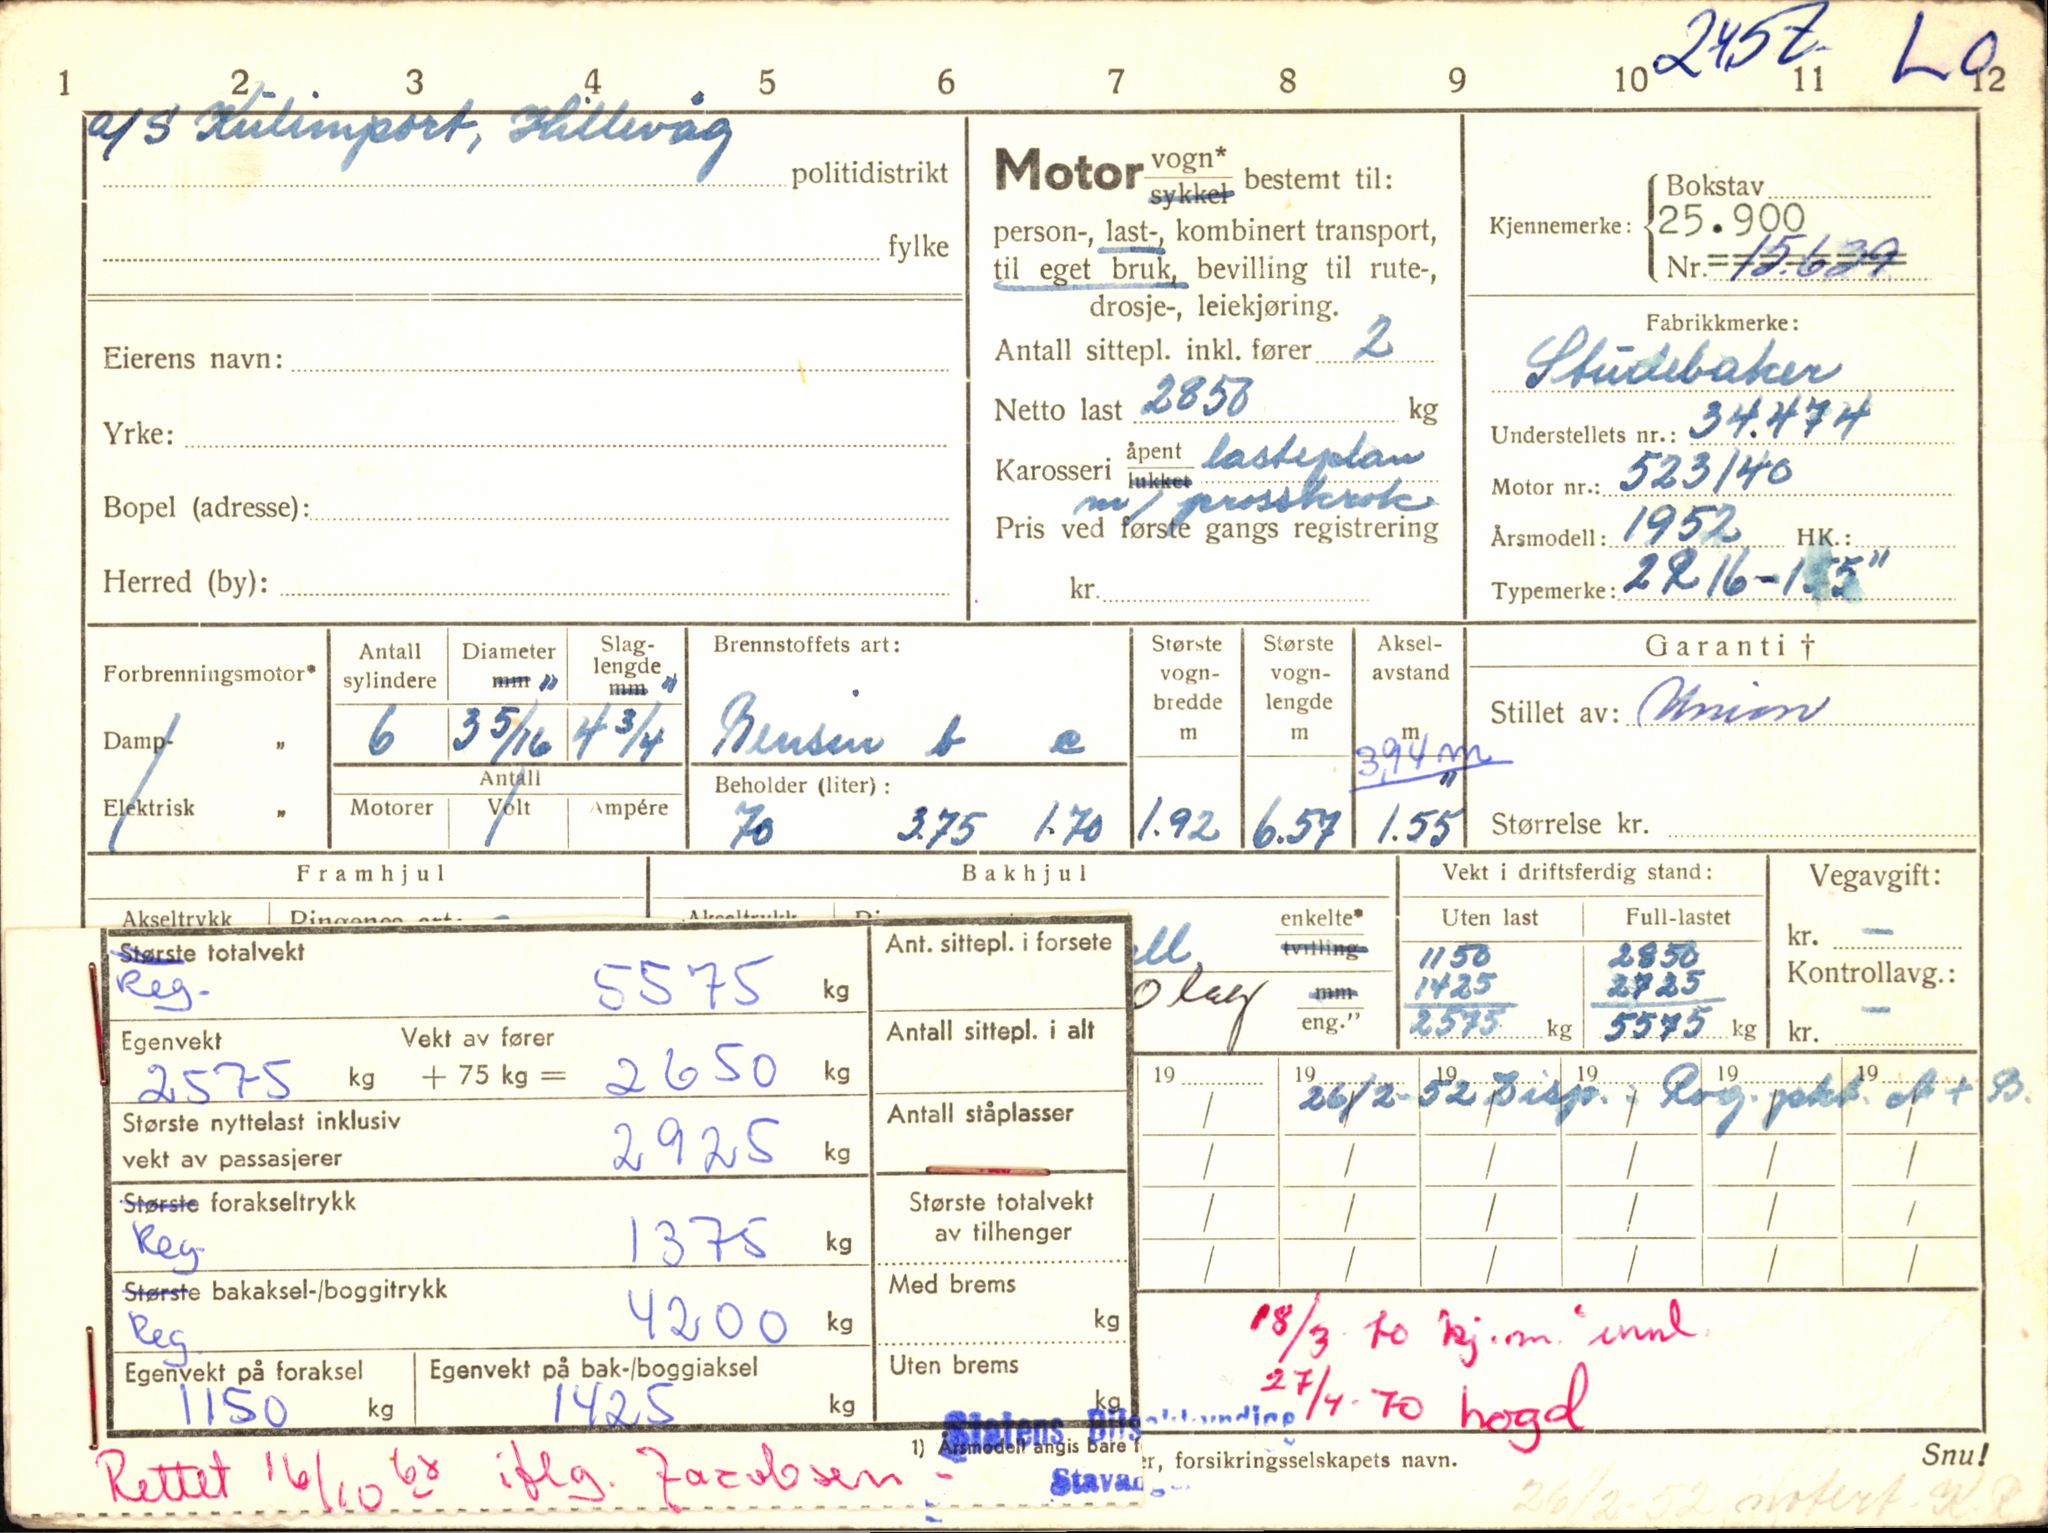 2457 L O
1 2 3 4 5 6 7 8 9 10 11 12
a/s Kulimport, Hillevåg
politidistrikt
fylke
Eierens navn:
Yrke:
Bopel (adresse):
Herred (by):
Motor vogn*
sykkel bestemt til:
person-, last-, kombinert transport,
til eget bruk, bevilling til rute-,
drosje-, leiekjøring.
Antall sittepl. inkl. fører 2
Netto last 2850 kg
Karosseri åpent
lukket lasteplan
m/ prosskrok
Pris ved første gangs registrering
kr.
Kjennemerke: Bokstav
25.900
Nr. 15.639
Fabrikkmerke:
Studebaker
Understellets nr.: 34.474
Motor nr.: 523140
Årsmodell: 1952 HK.:
Typemerke: 2R16-155"
Forbrenningsmotor*
Damp- „
Elektrisk „
Antall sylindere
6
Diameter mm "
3 5/16
Slaglengde mm "
4 3/4
Antall
Motorer Volt Ampére
Brennstoffets art:
Bensin b c
Beholder (liter):
70 3.75 1.70
Største vognbredde m
1.92
Største vognlengde m
6.57
Akselavstand m
3,94 m
1.55"
Garanti †
Stillet av: Union
Størrelse kr.
Framhjul
Akseltrykk
Bakhjul
enkelte*
tvilling
mm
eng."
Vekt i driftsferdig stand:
Uten last Full-lastet
1150 2850
1425 2725
2575 kg 5575 kg
Vegavgift:
kr. —
Kontrollavg.:
kr. —
Største totalvekt
Reg. 5575 kg
Egenvekt Vekt av fører
2575 kg + 75 kg = 2650 kg
Største nyttelast inklusiv
vekt av passasjerer 2925 kg
Største forakseltrykk
Reg 1375 kg
Største bakaksel-/boggitrykk
Reg. 4200 kg
Egenvekt på foraksel
1150 kg
Egenvekt på bak-/boggiaksel
1425 kg
Ant. sittepl. i forsete
Antall sittepl. i alt
Antall ståplasser
Største totalvekt
av tilhenger
Med brems
kg
Uten brems
kg
19 19 19 19 19 19
26/2-52 Disp. : Rog. pkt. A + B.
18/3 70 kj.m. innl.
27/4-70 hogd
Statens Bils
Stavan
1) Årsmodell angis bare
r, forsikringsselskapets navn.
Snu!
Rettet 16/10 68 iflg. Jacobsen -
26/2 52 notert.